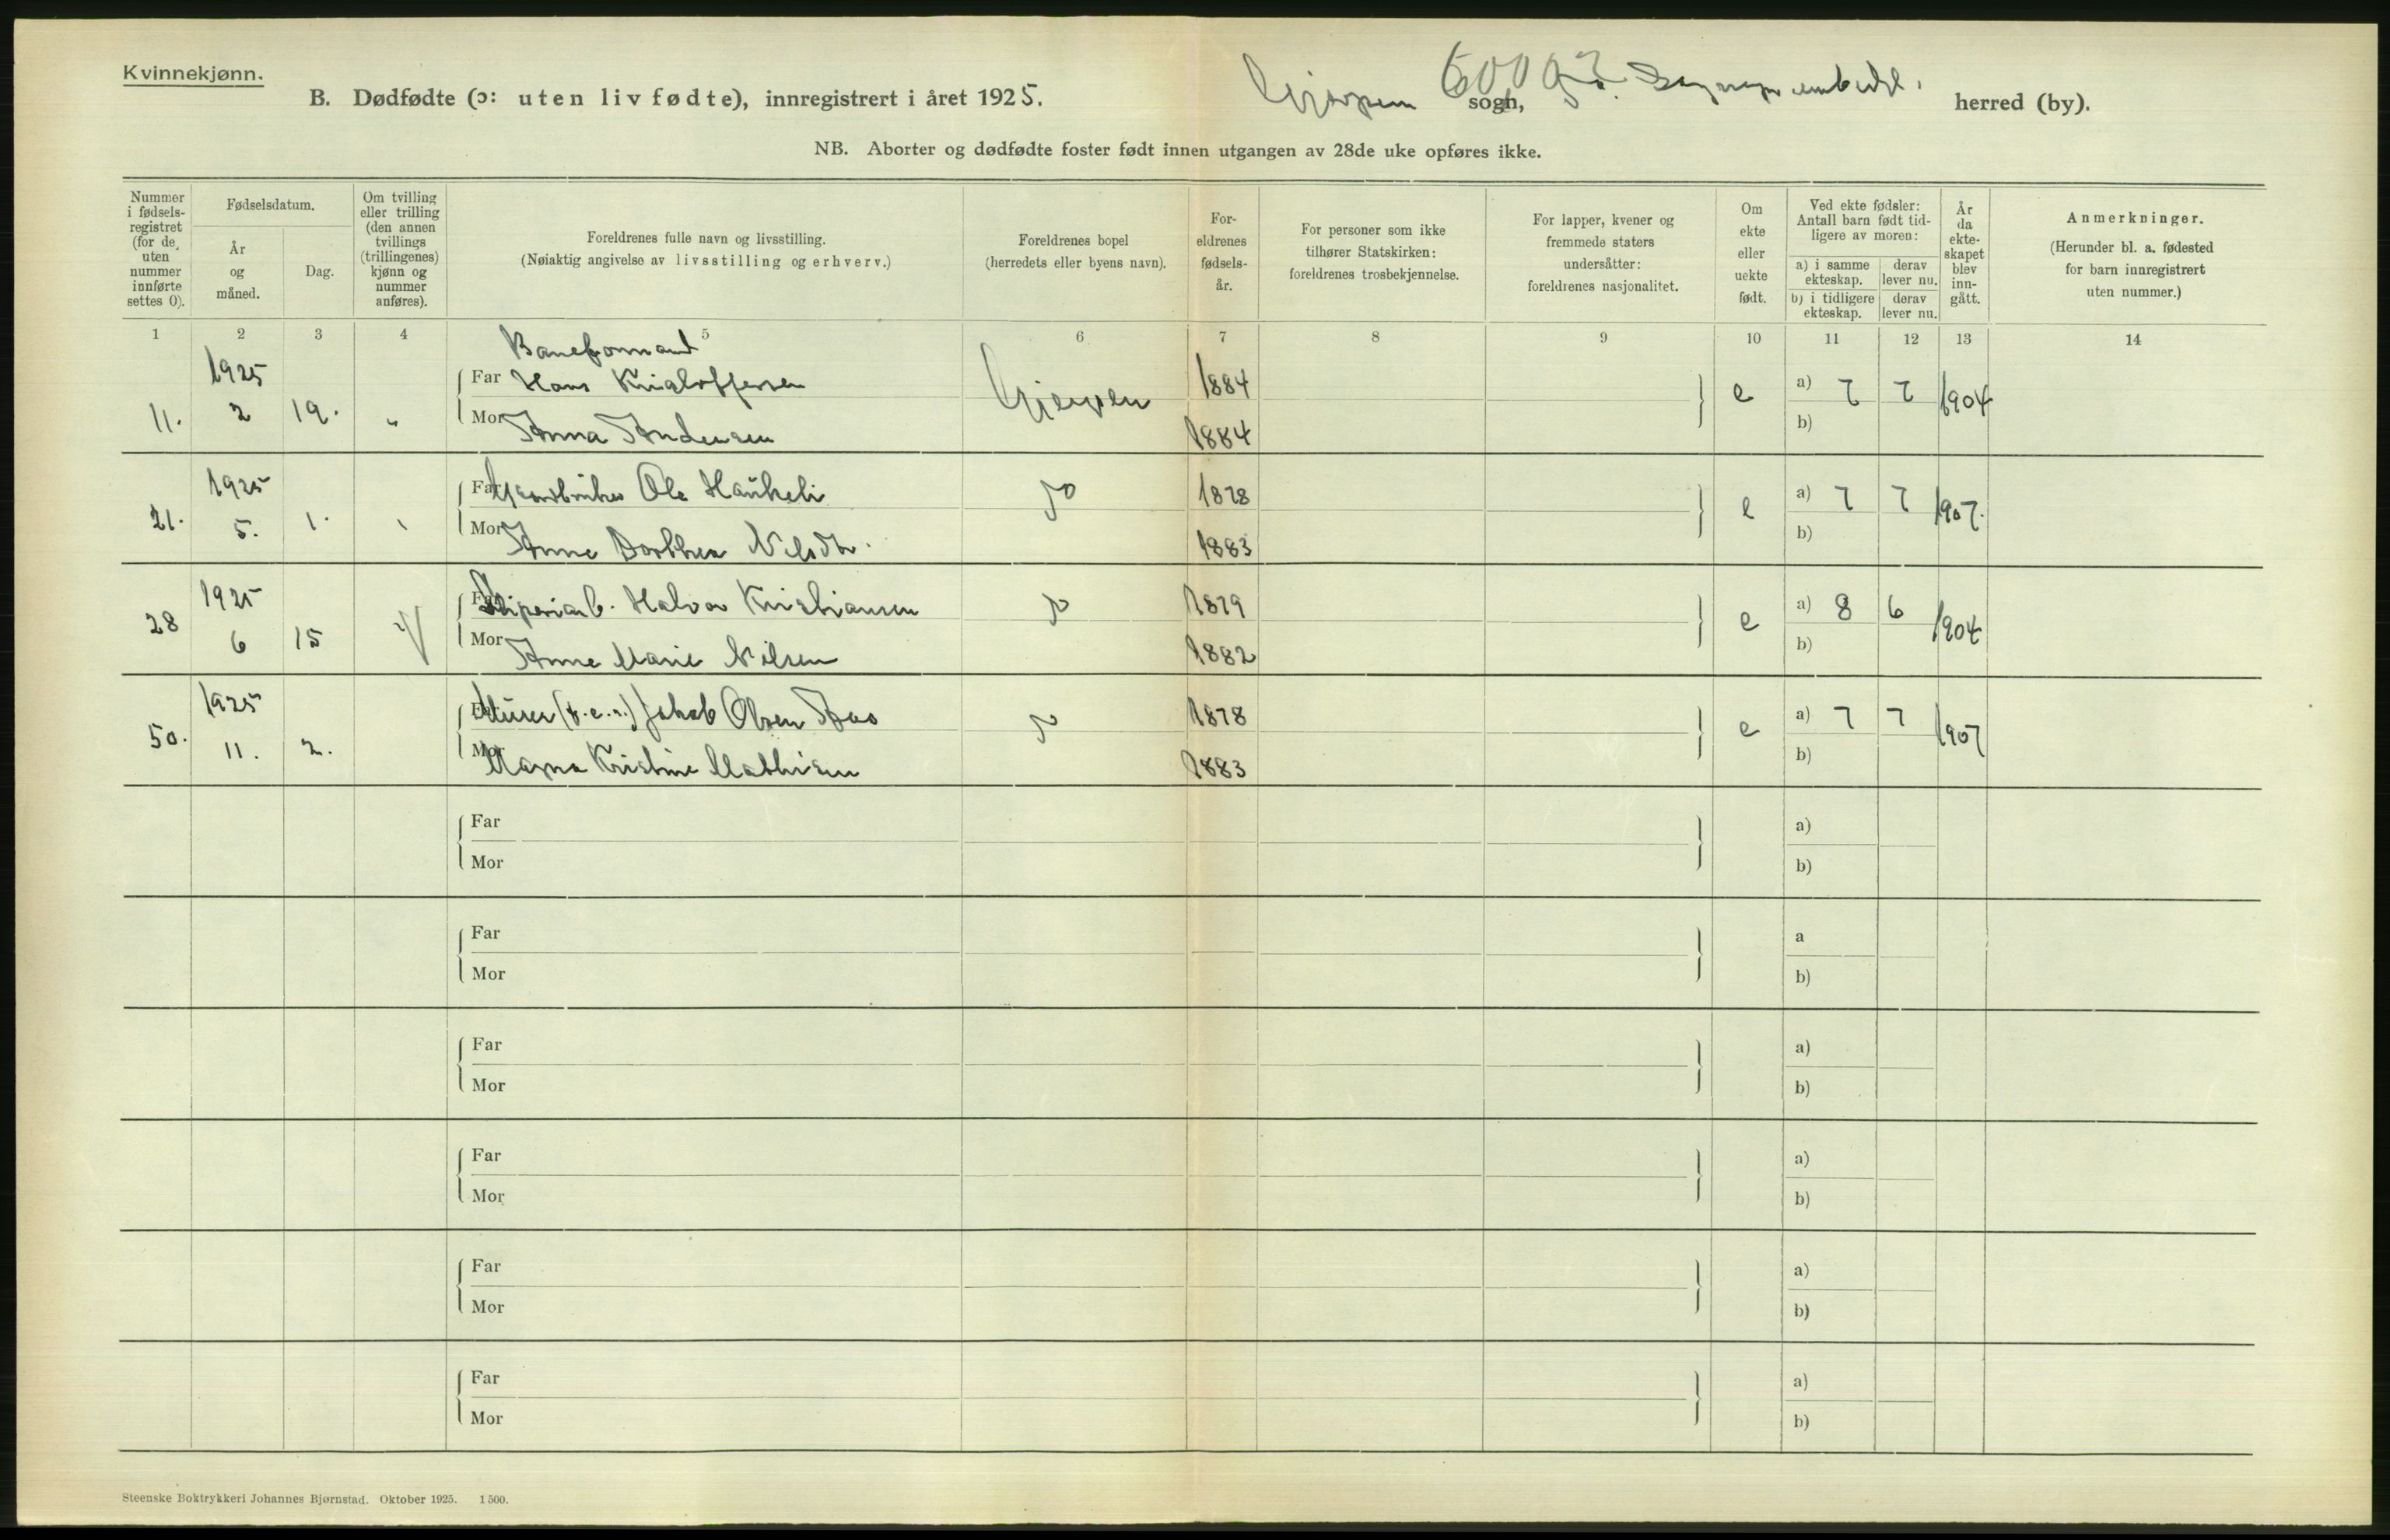 Kvinnekjønn.
B. Dødfødte (ɔ: uten liv fødte), innregistrert i året 1925.
Gjerpen sogn, herred (by).
NB. Aborter og dødfødte foster født innen utgangen av 28de uke opføres ikke.
Nummer i fødsels-registret (for de uten nummer innførte settes 0).
Fødselsdatum.
År og måned.
Dag.
Om tvilling eller trilling (den annen tvillings (trillingenes) kjønn og nummer anføres).
Foreldrenes fulle navn og livsstilling.
(Nøiaktig angivelse av livsstilling og erhverv.)
Foreldrenes bopel
(herredets eller byens navn).
For-eldrenes fødsels-år.
For personer som ikke tilhører Statskirken: foreldrenes trosbekjennelse.
For lapper, kvener og fremmede staters undersåtter: foreldrenes nasjonalitet.
Om ekte eller uekte født.
Ved ekte fødsler: Antall barn født tid-ligere av moren:
a) i samme ekteskap.
derav lever nu.
b) i tidligere ekteskap.
derav lever nu.
År da ekte-skapet blev inn-gått.
Anmerkninger.
(Herunder bl. a. fødested for barn innregistrert uten nummer.)
1 2 3 4 5 6 7 8 9 10 11 12 13 14
Baneformand
1925 Far Hans Kristoffersen Gjerpen 1884 e a) 7 7 1904
11. 2 19. " Mor Anna Andersen 1884 b)
1925 Far Gaardbruker Ole Haukeli 1878 e a) 7 7 1907.
21. 5. 1. Mor Anne Dorthea Nilsdtr. 1883 b)
1925 Far Halvor Kristiansen 1879 e a) 8 6 1904
28 6 15 Mor Anne Marie Nilsen 1882 b)
1925 Far Murer Jakob Olsen 1878 e a) 7 7 1907
50. 11. 2. Mor Kristine Mathisen 1883 b)
Far a)
Mor b)
Far a
Mor b)
Far a)
Mor b)
Far a)
Mor b)
Far a)
Mor b)
Far a)
Mor b)
Steenske Boktrykkeri Johannes Bjørnstad. Oktober 1925. 1500.